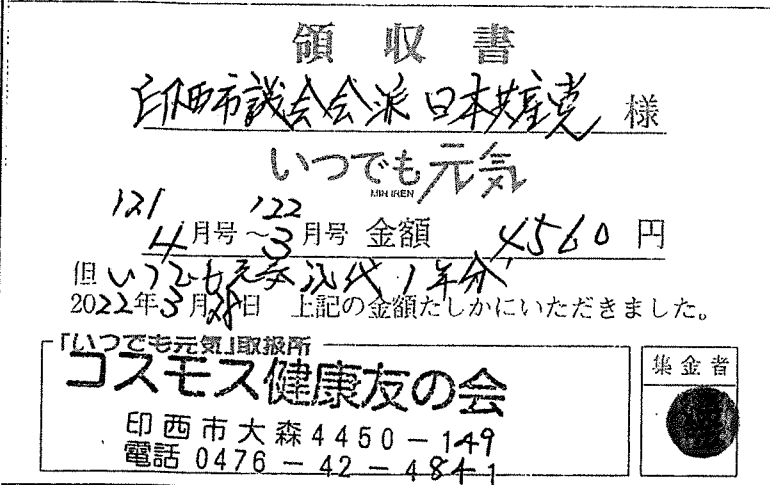 領収書
印西市議会会派 日本共産党 様
いつでも元気
MIN-IREN
'21 '22
4月号~3月号 金額 4560円
但 いつでも元気 代 1年分
2022年3月28日 上記の金額たしかにいただきました。
「いつでも元気」取扱所
コスモス健康友の会
印西市大森4450-149
電話 0476-42-4841
集金者